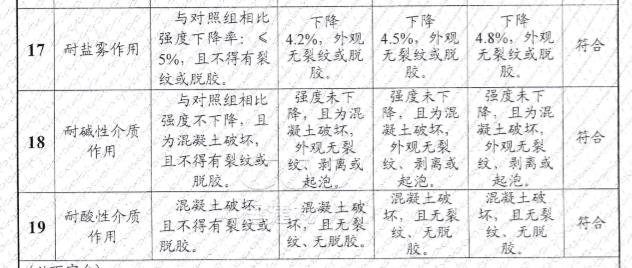 17
耐盐雾作用
与对照组相比
强度下降率：≤
5%，且不得有裂
纹或脱胶。
下降
4.2%，外观
无裂纹或脱
胶。
下降
4.5%，外观
无裂纹或脱
胶。
下降
4.8%，外观
无裂纹或脱
胶。
符合
18
耐碱性介质
作用
与对照组相比
强度不下降，且
为混凝土破坏，
且不得有裂纹或
脱胶。
强度未下
降，且为混
凝土破坏，
外观无裂
纹、剥离或
起泡。
强度未下
降，且为混
凝土破坏，
外观无裂
纹、剥离或
起泡。
强度未下
降，且为混
凝土破坏，
外观无裂
纹、剥离或
起泡。
符合
19
耐酸性介质
作用
混凝土破坏，
且不得有裂纹或
脱胶。
混凝土破
坏，且无裂
纹、无脱胶。
混凝土破
坏，且无裂
纹、无脱
胶。
混凝土破
坏，且无裂
纹、无脱
胶。
符合